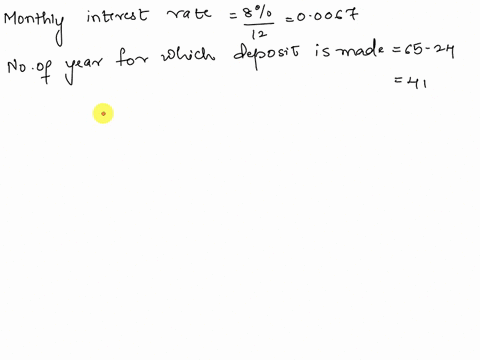 Monthly interest rate = 8%/12 = 0.0067
No. of year for which deposit is made = 65-24
= 41